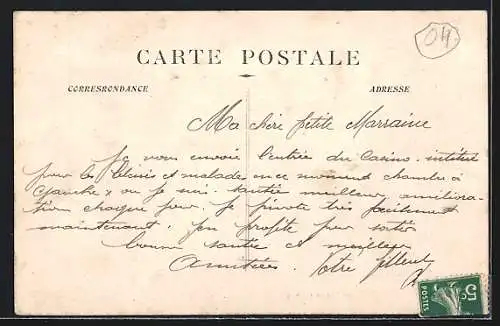 04
CARTE POSTALE
CORRESPONDANCE
ADRESSE
Ma chère petite Marraine
Je vous envoie l'entrée du Casino
pour les blessés et malade en ce moment chambre à
gauche x ou je suis. Santée meilleur, améliora-
tion chaque jour. Je pivote très facilement
maintenant. J'en profite pour sortir
bonne santée et meilleur
Amitiées. Votre filleul
POSTES
5c